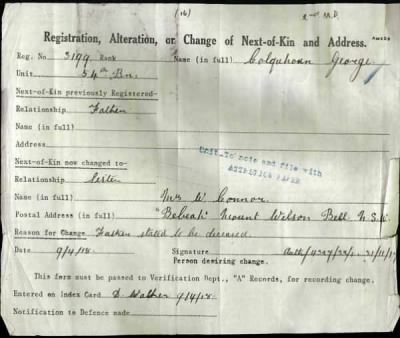 (16)
2nd M.D.
Registration, Alteration, or Change of Next-of-Kin and Address.
Reg. No 3199 Rank Name (in full) Colquhoun George
Unit 54th Bn.
Next-of-Kin previously Registered-
Relationship Father
Name (in full)
Address
Unit-To note and file with
ATTESTION PAPER
Next-of-Kin now changed to-
Relationship sister
Name (in full) Mrs W Connor
Postal Address (in full) Mount Wilson Bell N.S.W.
Reason for Change Father stated to be deceased.
Date 9/4/18 Signature
Person desiring change.
This form must be passed to Verification Dept., "A" Records, for recording change.
Entered on Index Card D. Walker 9/4/18.
Notification to Defence made